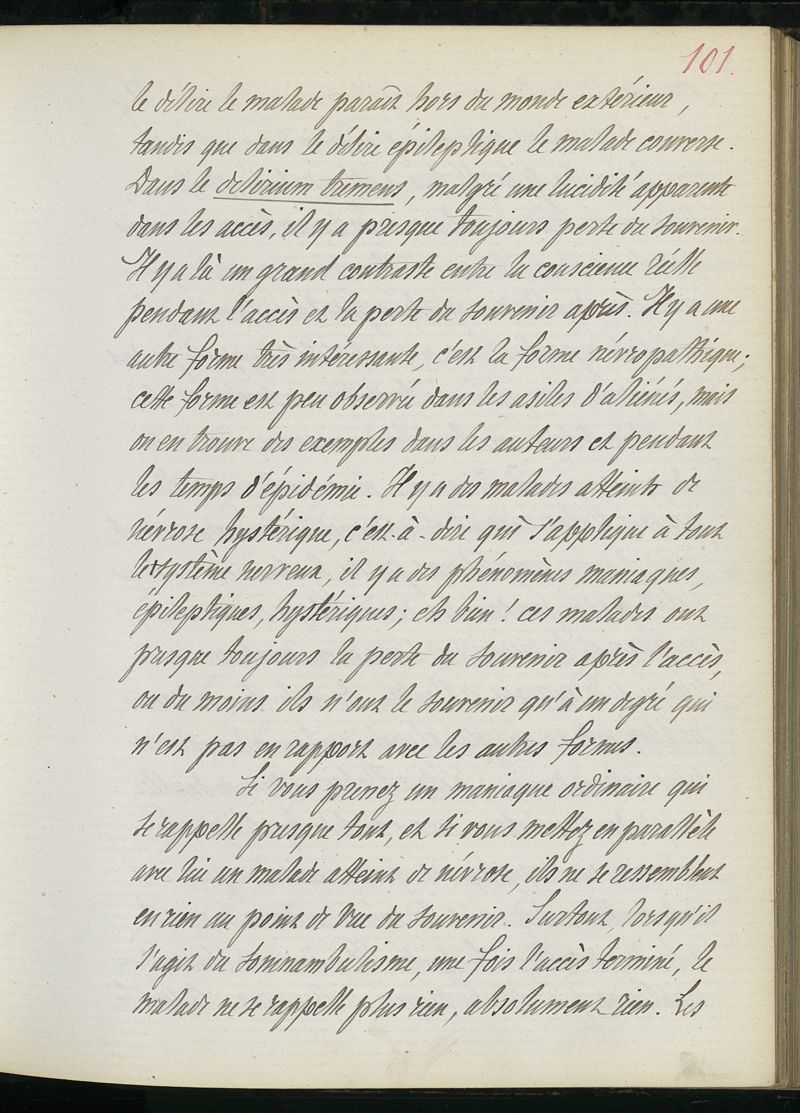 101.
le délire le malade paraît hors du monde extérieur,
tandis que dans le délire épileptique le malade converse.
Dans le delirium tremens, malgré une lucidité apparente
dans les accès, il y a presque toujours perte du souvenir.
Il y a là un grand contraste entre la conscience réelle
pendant l'accès et la perte du souvenir après. Il y a une
autre forme très intéressante, c'est la forme névropathique;
cette forme est peu observée dans les asiles d'aliénés, mais
on en trouve des exemples dans les auteurs et pendant
les temps d'épidémie. Il y a des malades atteints de
névrose hystérique, c'est-à-dire qui s'applique à tout
le système nerveux, il y a des phénomènes maniaques,
épileptiques, hystériques; eh bien! ces malades ont
presque toujours la perte du souvenir après l'accès,
ou du moins ils n'ont le souvenir qu'à un degré qui
n'est pas en rapport avec les autres formes.
Si vous prenez un maniaque ordinaire qui
se rappelle presque tout, et si vous mettez en parallèle
avec lui un malade atteint de névrose, ils ne se ressemblent
en rien au point de vue du souvenir. Surtout, lorsqu'il
s'agit du somnambulisme, une fois l'accès terminé, le
malade ne se rappelle plus rien, absolument rien. Les